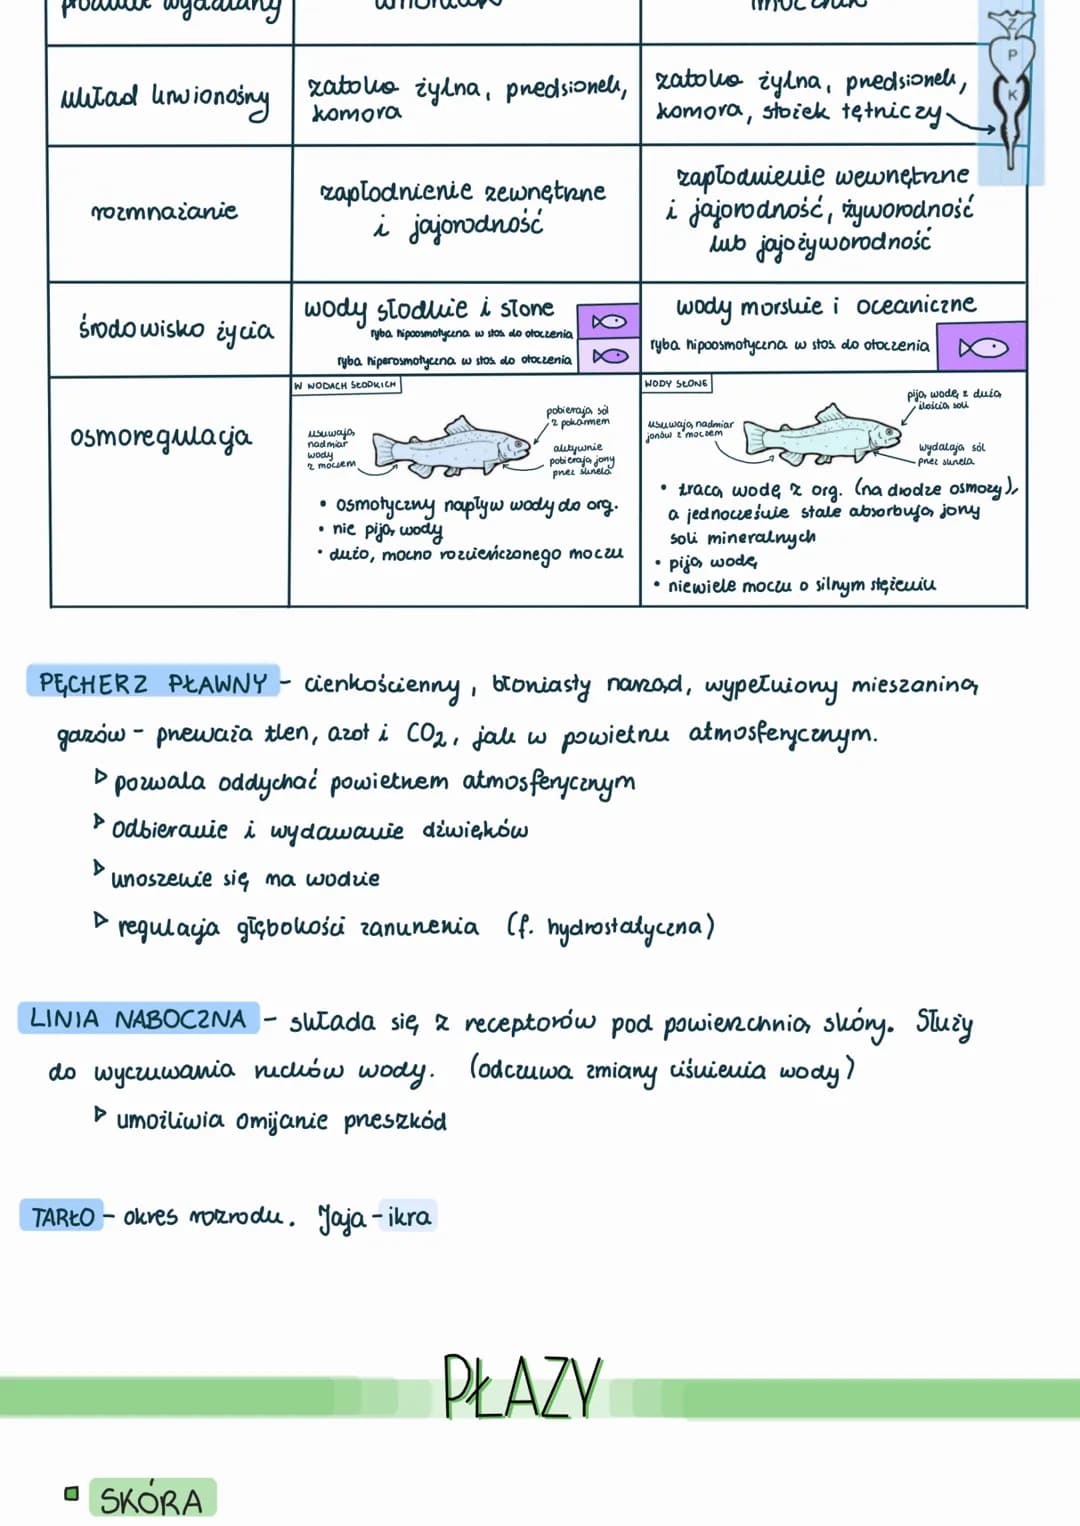 produkt wydalany
amoniak
mocznik
układ krwionośny
zatoka żylna, przedsionek,
komora
zatoka żylna, przedsionek,
komora, stożek tętniczy
Z
P
K
rozmnażanie
zapłodnienie zewnętrzne
i jajorodność
zapłodnienie wewnętrzne
i jajorodność, żyworodność
lub jajożyworodność
środowisko życia
wody słodkie i słone
ryba hipoosmotyczna w stos. do otoczenia
ryba hiperosmotyczna w stos. do otoczenia
wody morskie i oceaniczne
ryba hipoosmotyczna w stos. do otoczenia
osmoregulacja
W WODACH SŁODKICH
usuwają
nadmiar
wody
z moczem
pobierają sól
z pokarmem
aktywnie
pobierają jony
przez skrzela
• osmotyczny napływ wody do org.
• nie piją wody
• dużo, mocno rozcieńczonego moczu
WODY SŁONE
usuwają nadmiar
jonów z moczem
piją wodę z dużą
ilością soli
wydalają sól
przez skrzela
• tracą wodę z org. (na drodze osmozy),
a jednocześnie stale absorbują jony
soli mineralnych
• piją wodę
• niewiele moczu o silnym stężeniu
PĘCHERZ PŁAWNY - cienkościenny, błoniasty narząd, wypełniony mieszaniną
gazów - przeważa tlen, azot i CO₂, jak w powietrzu atmosferycznym.
▷ pozwala oddychać powietrzem atmosferycznym
▷ odbieranie i wydawanie dźwięków
▷ unoszenie się na wodzie
▷ regulacja głębokości zanurzenia (f. hydrostatyczna)
LINIA NABOCZNA - składa się z receptorów pod powierzchnią skóry. Służy
do wyczuwania ruchów wody. (odczuwa zmiany ciśnienia wody)
▷ umożliwia omijanie przeszkód
TARŁO - okres rozrodu. Jaja - ikra
PŁAZY
SKÓRA